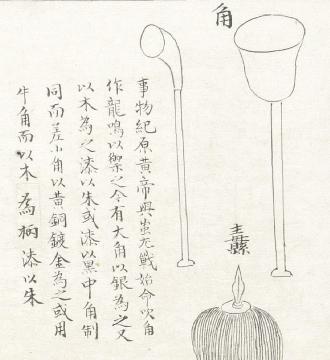 角
事物紀原黃帝與蚩尤戰始命吹角
作龍鳴以禦之今有大角以銀為之又
以木為之漆以朱或漆以黑中角制
同而差小角以黃銅鍍金為之或用
牛角而以木為柄漆以朱
纛